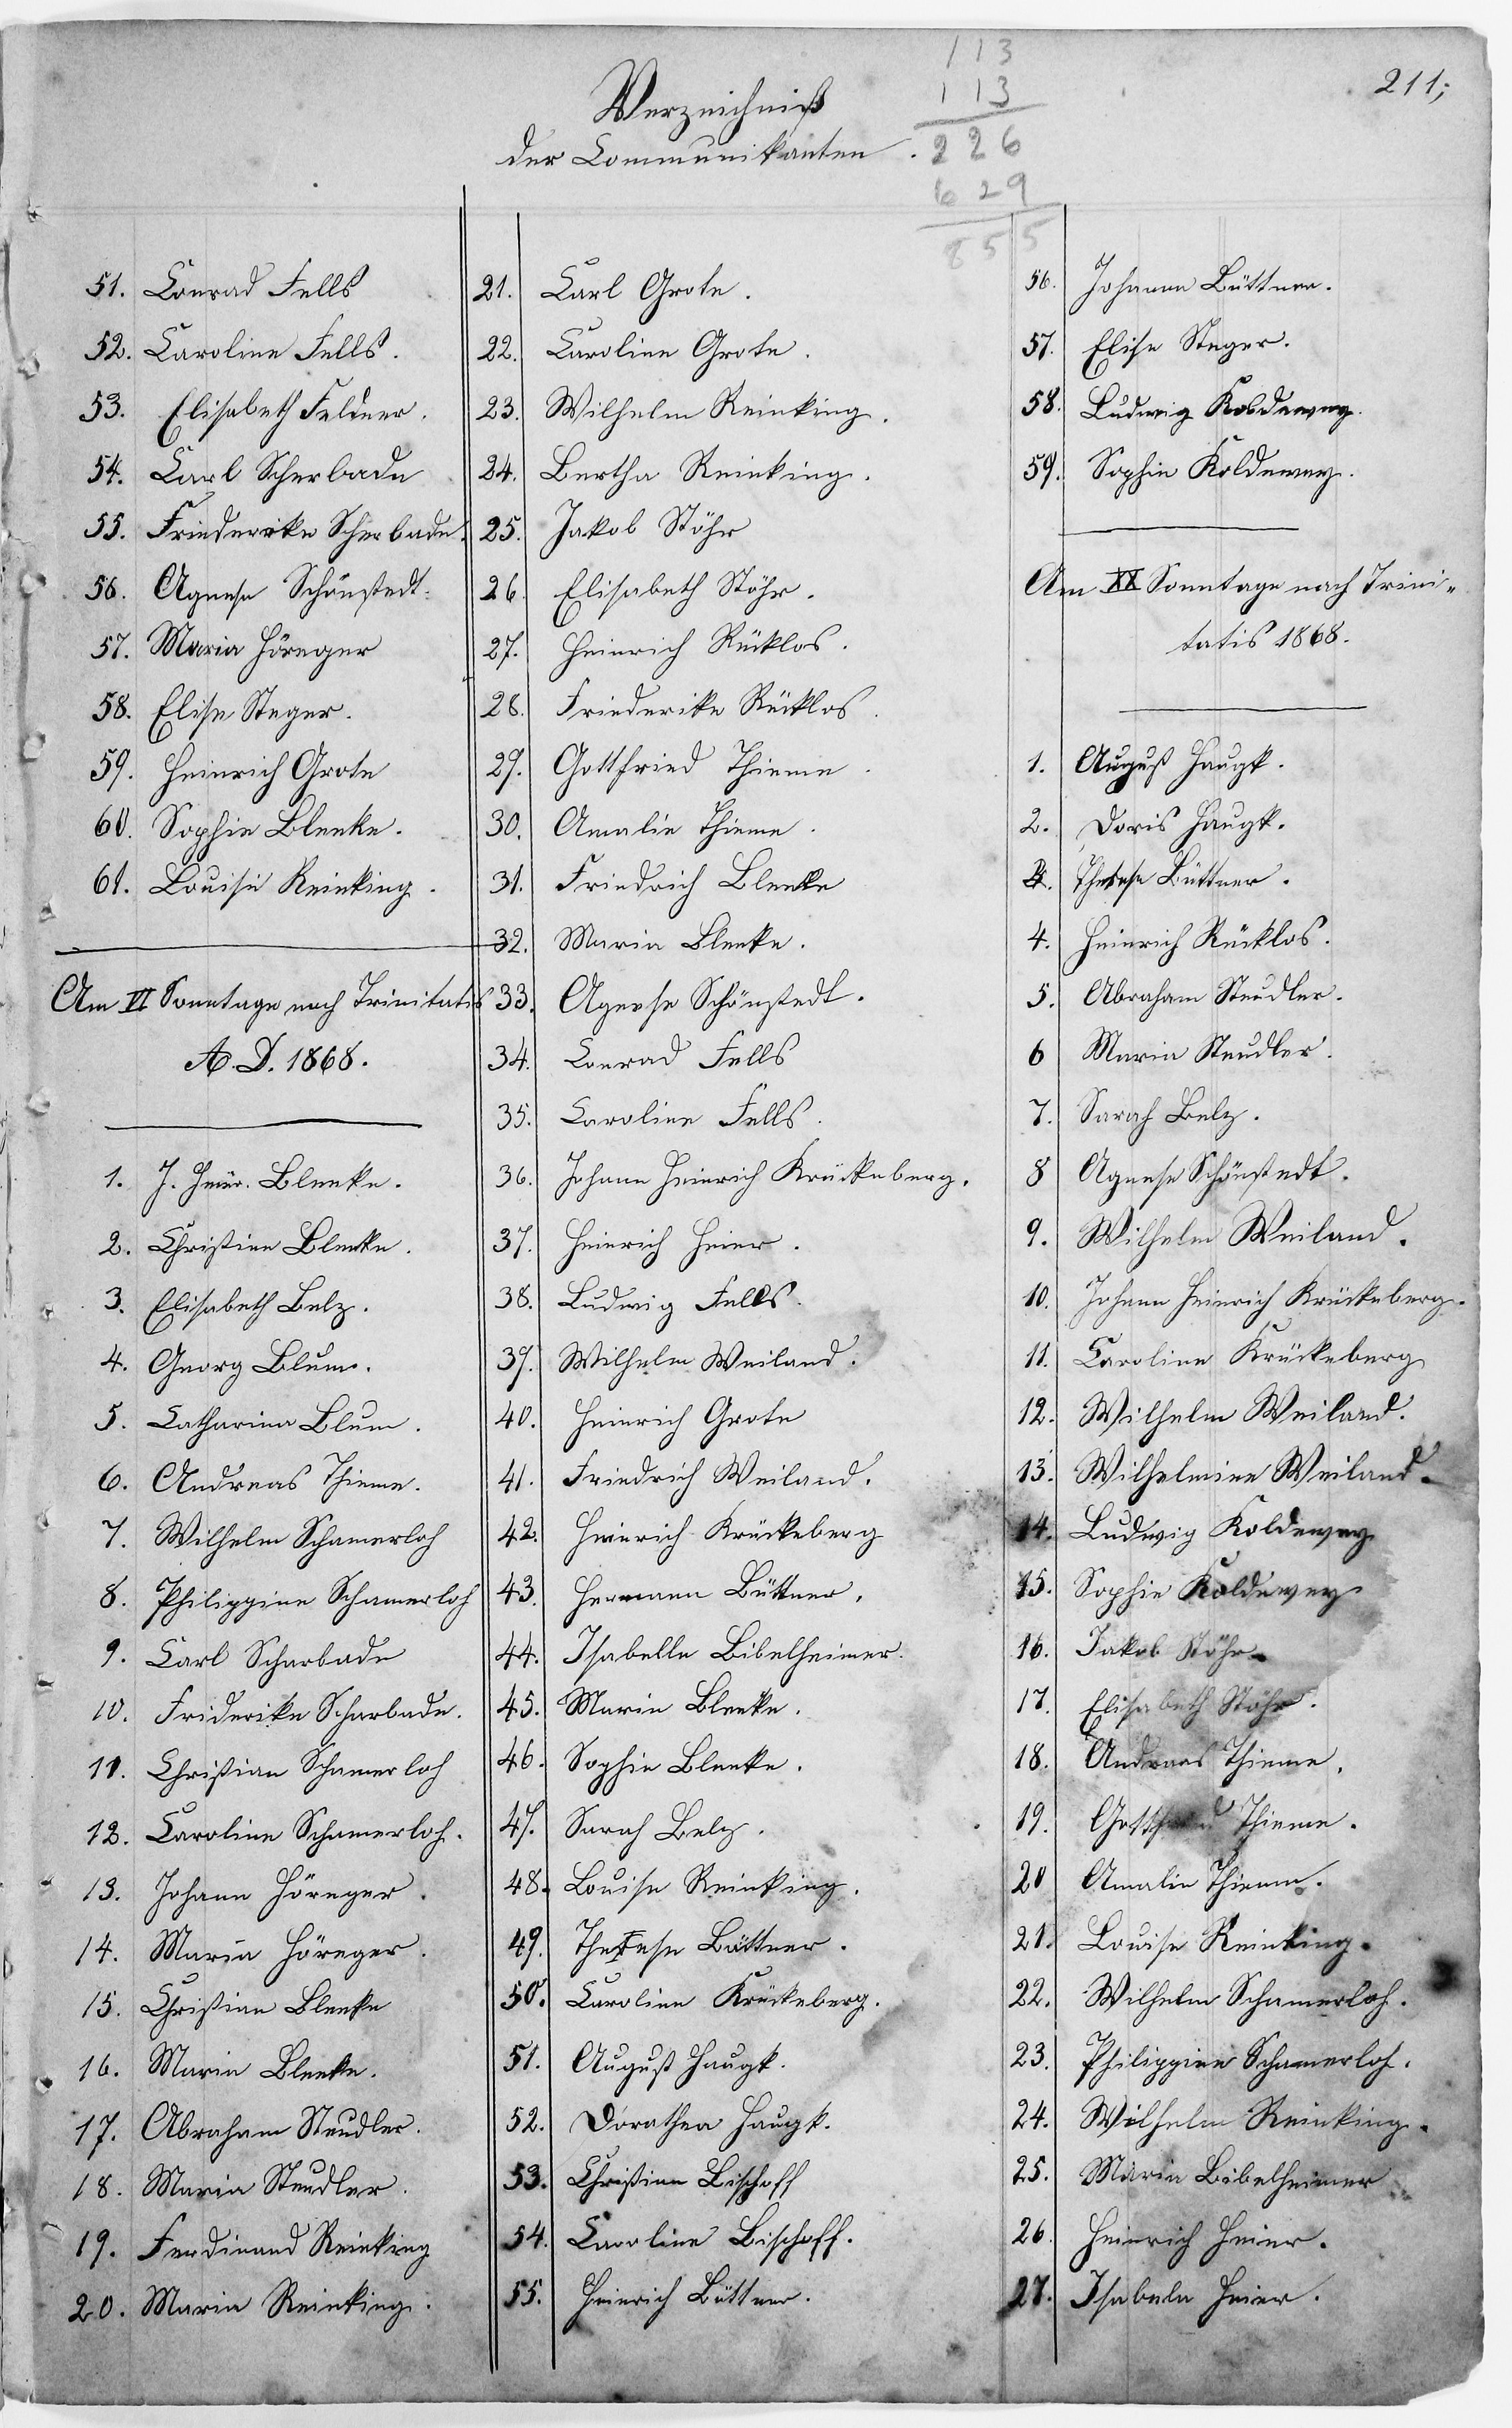 113
113
226
629
855
211;
Verzeichniß
der Communikanten.
51. Conrad Fells
52. Caroline Fells.
53. Elisabeth Feldner.
54. Carl Scherbade
55. Friederike Scherbade.
56. Agnese Schönstedt.
57. Maria Höreger
58. Elise Steger.
59. Heinrich Grote
60. Sophie Blenke.
61. Louise Reinking.
Am VI Sonntage nach Trinitatis
A. D. 1868.
1. J. Heinr. Blenke.
2. Christine Blenke.
3. Elisabeth Belz.
4. Georg Blum.
5. Catharina Blum.
6. Andreas Thieme.
7. Wilhelm Schamerloh
8. Philippine Schamerloh
9. Carl Scharbade
10. Friderike Scharbade.
11. Christian Schamerloh
12. Caroline Schamerloh.
13. Johann Höreger.
14. Maria Höreger.
15. Christian Blenke
16. Maria Blenke.
17. Abraham Steudler.
18. Maria Steudler.
19. Ferdinand Reinking
20. Maria Reinking.
21. Carl Grote.
22. Caroline Grote.
23. Wilhelm Reinking.
24. Bertha Reinking.
25. Jakob Stöhr
26. Elisabeth Stöhr.
27. Heinrich Rücklos.
28. Friederike Rücklos.
29. Gottfried Thieme.
30. Amalie Thieme.
31. Friedrich Blenke
32. Maria Blenke.
33. Agnese Schönstedt.
34. Conrad Fells
35. Caroline Fells.
36. Johann Heinrich Krückeberg.
37. Heinrich Heier.
38. Ludwig Fells.
39. Wilhelm Weiland.
40. Heinrich Grote
41. Friedrich Weiland.
42. Heinrich Krückeberg
43. Hermann Büttner.
44. Isabelle Bibelheimer.
45. Maria Blenke.
46. Sophie Blenke.
47. Sarah Belz.
48. Louise Reinking.
49. Therese Büttner.
50. Caroline Krückeberg.
51. August Haugk.
52. Dorathea Haugk.
53. Christian Bischoff
54. Caroline Bischoff.
55. Heinrich Büttner.
56. Johann Büttner.
57. Elise Steger.
58. Ludwig Koldewey.
59. Sophie Koldewey.
Am XX Sonntage nach Trini-
tatis 1868.
1. August Haugk.
2. Doris Haugk.
3. Therese Büttner.
4. Heinrich Rücklos.
5. Abraham Steudler.
6 Maria Steudler.
7. Sarah Belz.
8 Agnese Schönstedt.
9. Wilhelm Weiland.
10. Johann Heinrich Krückeberg.
11. Caroline Krückeberg
12. Wilhelm Weiland.
13. Wilhelmine Weiland.
14. Ludwig Koldewey
15. Sophie Koldewey
16. Jakob Stöhr.
17. Elisabeth Stöhr.
18. Andreas Thieme.
19. Gottfried Thieme.
20 Amalie Thieme.
21. Louise Reinking.
22. Wilhelm Schamerloh.
23. Philippine Schamerloh.
24. Wilhelm Reinking.
25. Maria Bibelheimer
26. Heinrich Heier.
27. Isabela Heier.